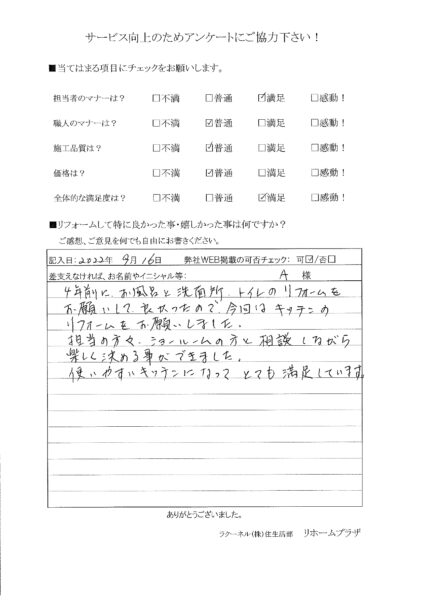 サービス向上のためアンケートにご協力下さい！
■当てはまる項目にチェックをお願いします。
担当者のマナーは？ □不満 □普通 ☑満足 □感動！
職人のマナーは？ □不満 ☑普通 □満足 □感動！
施工品質は？ □不満 ☑普通 □満足 □感動！
価格は？ □不満 ☑普通 □満足 □感動！
全体的な満足度は？ □不満 □普通 ☑満足 □感動！
■リフォームして特に良かった事・嬉しかった事は何ですか？
ご感想、ご意見を何でも自由にお書きください。
記入日：2022年 9月 16日 弊社WEB掲載の可否チェック： 可☑/否□
差支えなければ、お名前やイニシャル等： A 様
4年前に、お風呂と洗面所、トイレのリフォームを
お願いして、良かったので、今回はキッチンの
リフォームをお願いしました。
担当の方々、ショールームの方と相談しながら
楽しく決める事ができました。
使いやすいキッチンになって とても満足しています。
ありがとうございました。
ラクーネル（株）住生活部 リホームプラザ